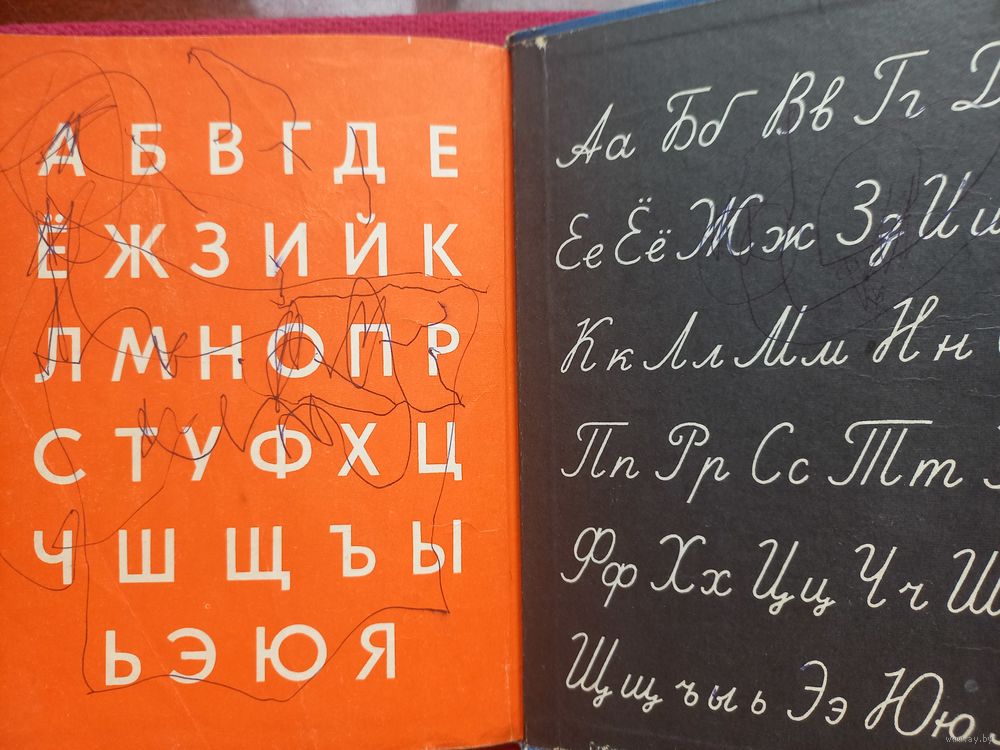 А Б В Г Д Е
Ё Ж З И Й К
Л М Н О П Р
С Т У Ф Х Ц
Ч Ш Щ Ъ Ы
Ь Э Ю Я
Аа Бб Вв Гг Д
Ее Ёё Жж Зз Ии
Кк Лл Мм Нн
Пп Рр Сс Тт
Фф Хх Цц Чч Ш
Щщ ъ ы ь Ээ Юю